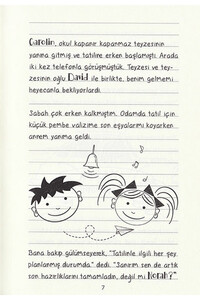 Carolin, okul kapanır kapanmaz teyzesinin
yanına gitmiş ve tatiline erken başlamıştı. Arada
iki kez telefonla görüşmüştük. Teyzesi ve tey-
zesinin oğlu David ile birlikte, benim gelmemi
heyecanla bekliyorlardı.
Sabah çok erken kalkmıştım. Odamda tatil için
küçük pembe valizime son eşyalarımı koyarken
annem yanıma geldi.
Bana bakıp gülümseyerek, "Tatilinle ilgili her şey
planlanmış durumda" dedi. "Janırım sen de artık
son hazırlıklarını tamamladın, değil mi Norah?"
7